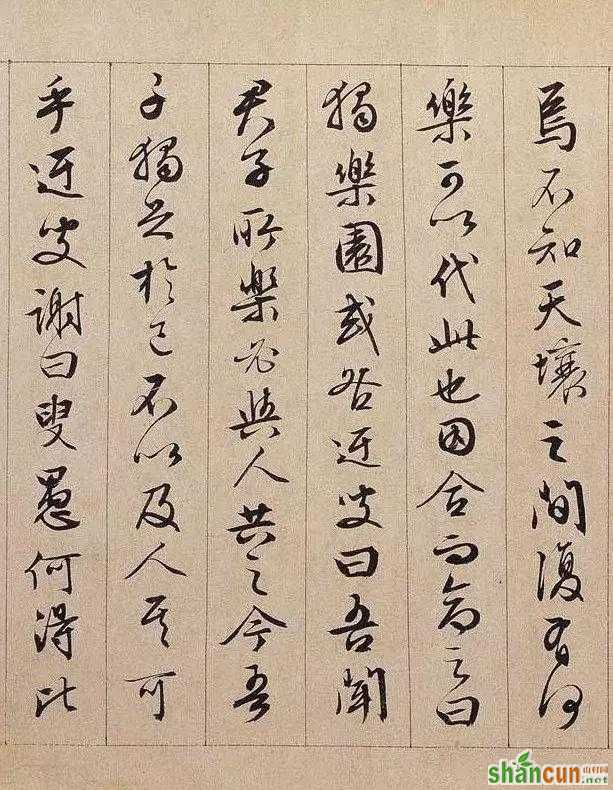 焉不知天壤之間復有何
樂可以代此也因合而命之曰
獨樂園或咎迂叟曰吾聞
君子所樂必與人共之今吾
子獨足於己不以及人其可
乎迂叟謝曰叟愚何得比
shancun
山村网
.net